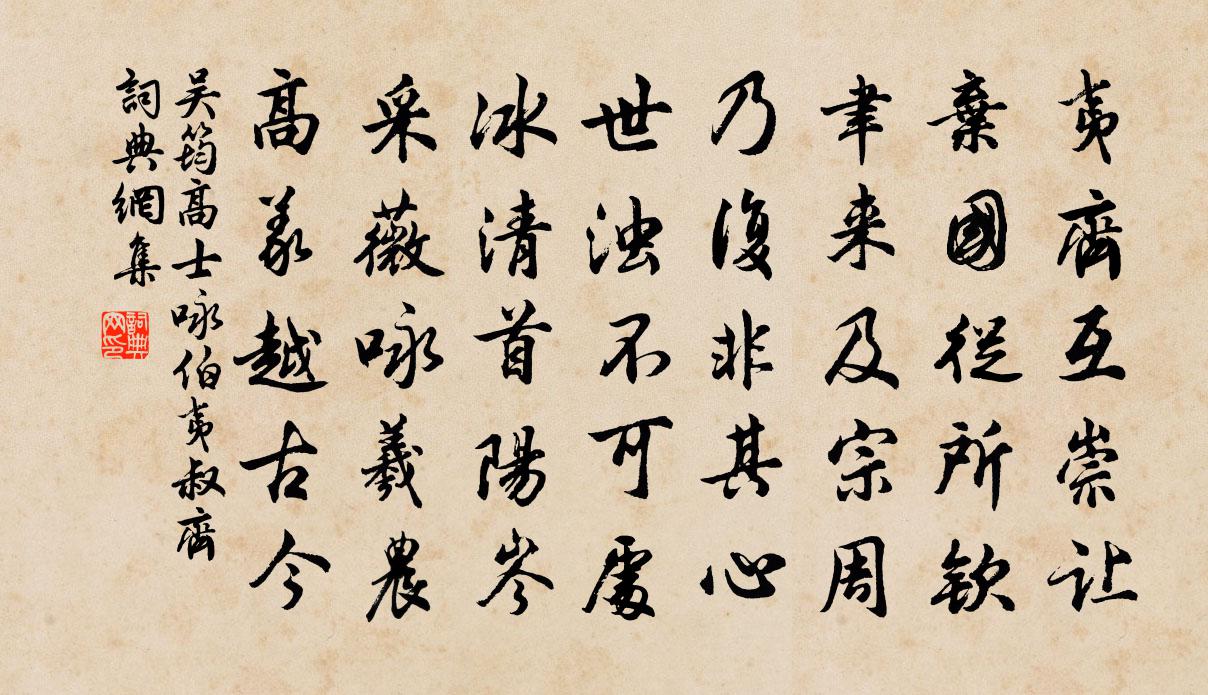 夷齊互崇让
棄國從所欽
聿来及宗周
乃復非其心
世浊不可處
冰清首陽岑
采薇咏羲農
高義越古今
吴筠高士咏伯夷叔齊
詞典網集
詞典网印